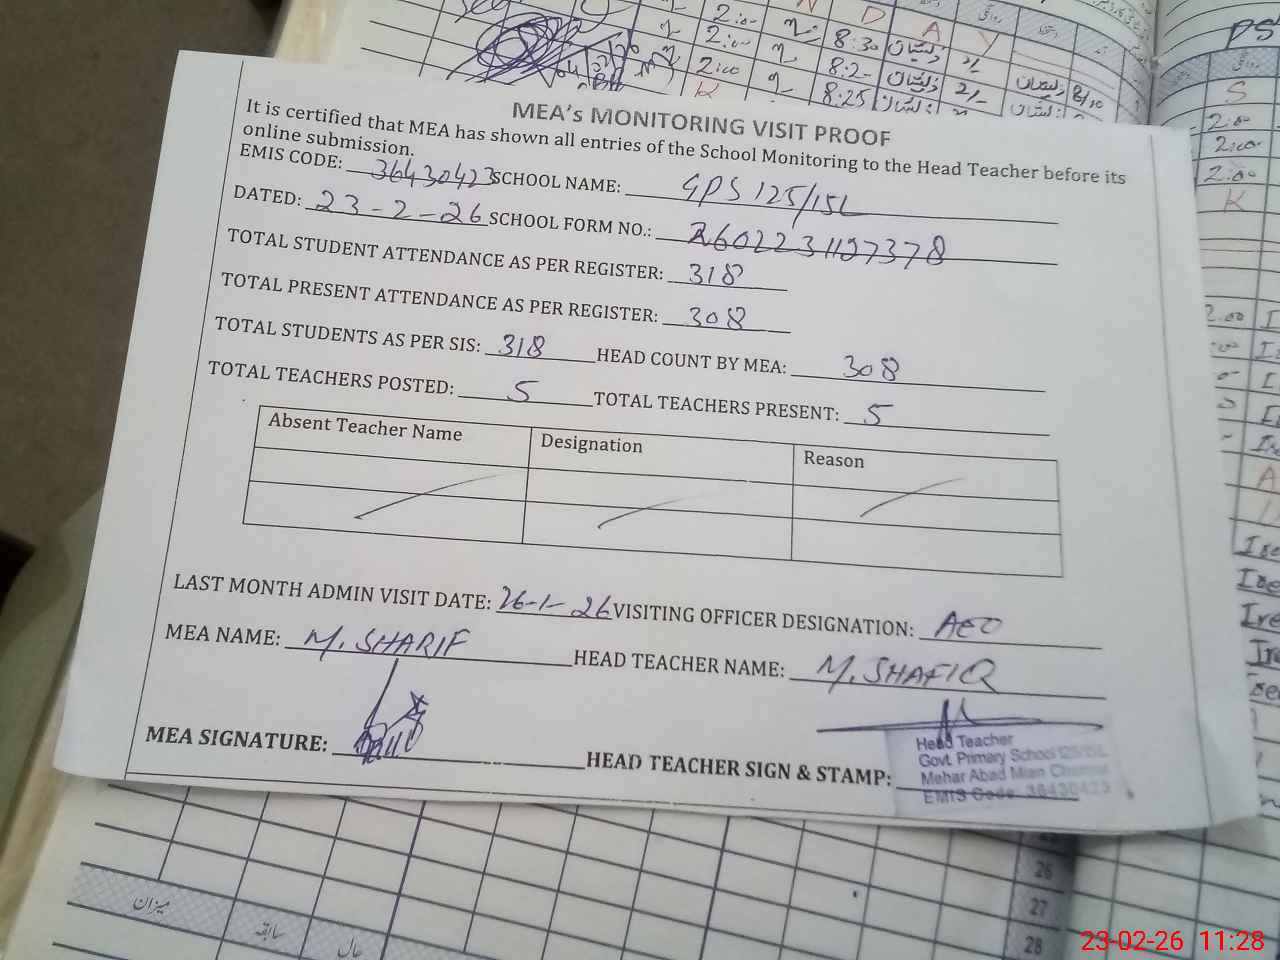 2:00
N
D
A
Y
2:00
8:30
2:00
8:2-
8:25
K
PS
S
2:00
2:00
2:00
K
MEA's MONITORING VISIT PROOF
It is certified that MEA has shown all entries of the School Monitoring to the Head Teacher before its
online submission.
EMIS CODE: 36430423 SCHOOL NAME: GPS 125/15L
DATED: 23-2-26 SCHOOL FORM NO.: 2602231127378
TOTAL STUDENT ATTENDANCE AS PER REGISTER: 318
TOTAL PRESENT ATTENDANCE AS PER REGISTER: 308
TOTAL STUDENTS AS PER SIS: 318 HEAD COUNT BY MEA: 308
TOTAL TEACHERS POSTED: 5 TOTAL TEACHERS PRESENT: 5
Absent Teacher Name Designation Reason
LAST MONTH ADMIN VISIT DATE: 26-1-26 VISITING OFFICER DESIGNATION: AEO
MEA NAME: M. SHARIF HEAD TEACHER NAME: M. SHAFIQ
MEA SIGNATURE: HEAD TEACHER SIGN & STAMP:
Head Teacher
Govt. Primary School 125/15L
Mehar Abad Mian Channu
EMIS Code 36430423
26
27
28
میزان
سابقہ
حال
23-02-26 11:28